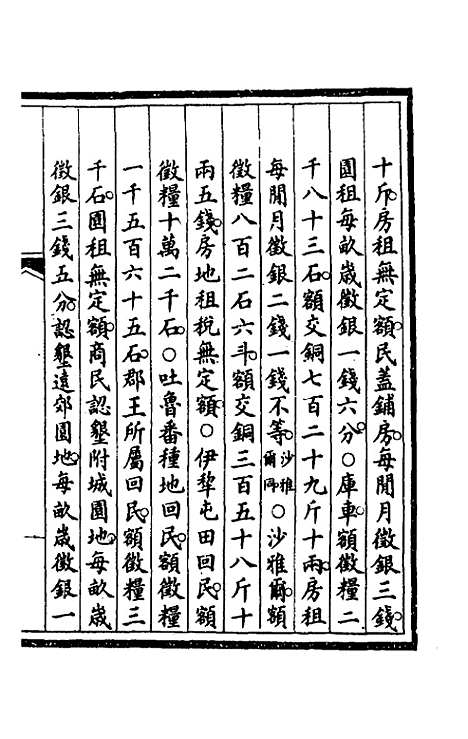 十斤房租無定額民蓋鋪房每閒月徵銀三錢
園租每畝歲徵銀一錢六分○庫車額徵糧二
千八十三石額交銅七百二十九斤十兩房租
每閒月徵銀二錢一錢不等沙雅爾同○沙雅爾額
徵糧八百二石六斗額交銅三百五十八斤十
兩五錢房地租稅無定額○伊犂屯田回民額
徵糧十萬二千石○吐魯番種地回民額徵糧
一千五百六十五石郡王所屬回民額徵糧三
千石園租無定額商民認墾附城園地每畝歲
徵銀三錢五分認墾遠郊園地每畝歲徵銀一